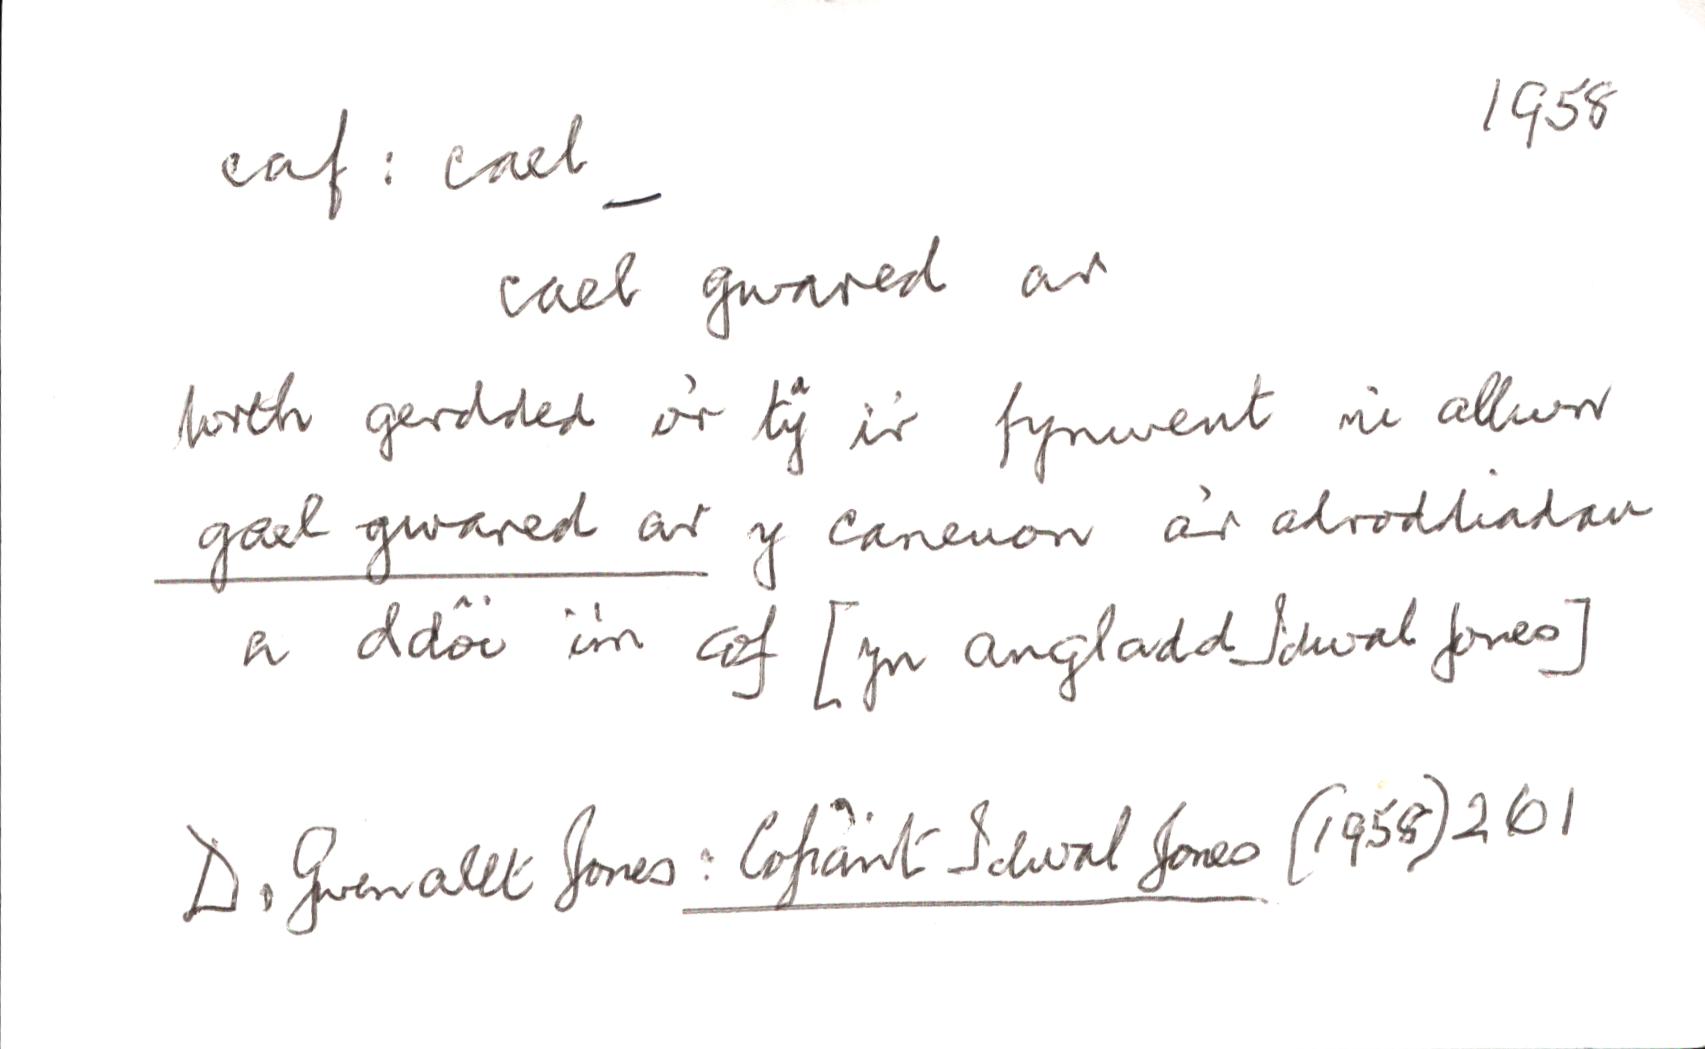 1958
caf: cael_
cael gwared ar
Wrth gerdded o'r tŷ i'r fynwent ni allwn
gael gwared ar y caneuon a'r adroddiadau
a ddôi i'm cof [yn angladd Idwal Jones]
D. Gwenallt Jones: Cofiant Idwal Jones (1958) 261